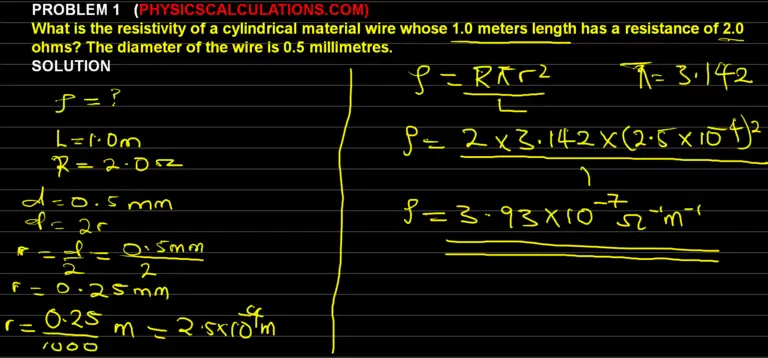 PROBLEM 1 (PHYSICSCALCULATIONS.COM)
What is the resistivity of a cylindrical material wire whose 1.0 meters length has a resistance of 2.0
ohms? The diameter of the wire is 0.5 millimetres.
SOLUTION
ρ = ?
L = 1.0m
R = 2.0Ω
d = 0.5 mm
d = 2r
r = d/2 = 0.5mm/2
r = 0.25mm
r = 0.25/1000 m = 2.5×10⁻⁴m
ρ = Rπr²/L π = 3.142
ρ = 2 × 3.142 × (2.5 × 10⁻⁴)²/1
ρ = 3.93 × 10⁻⁷ Ω⁻¹m⁻¹